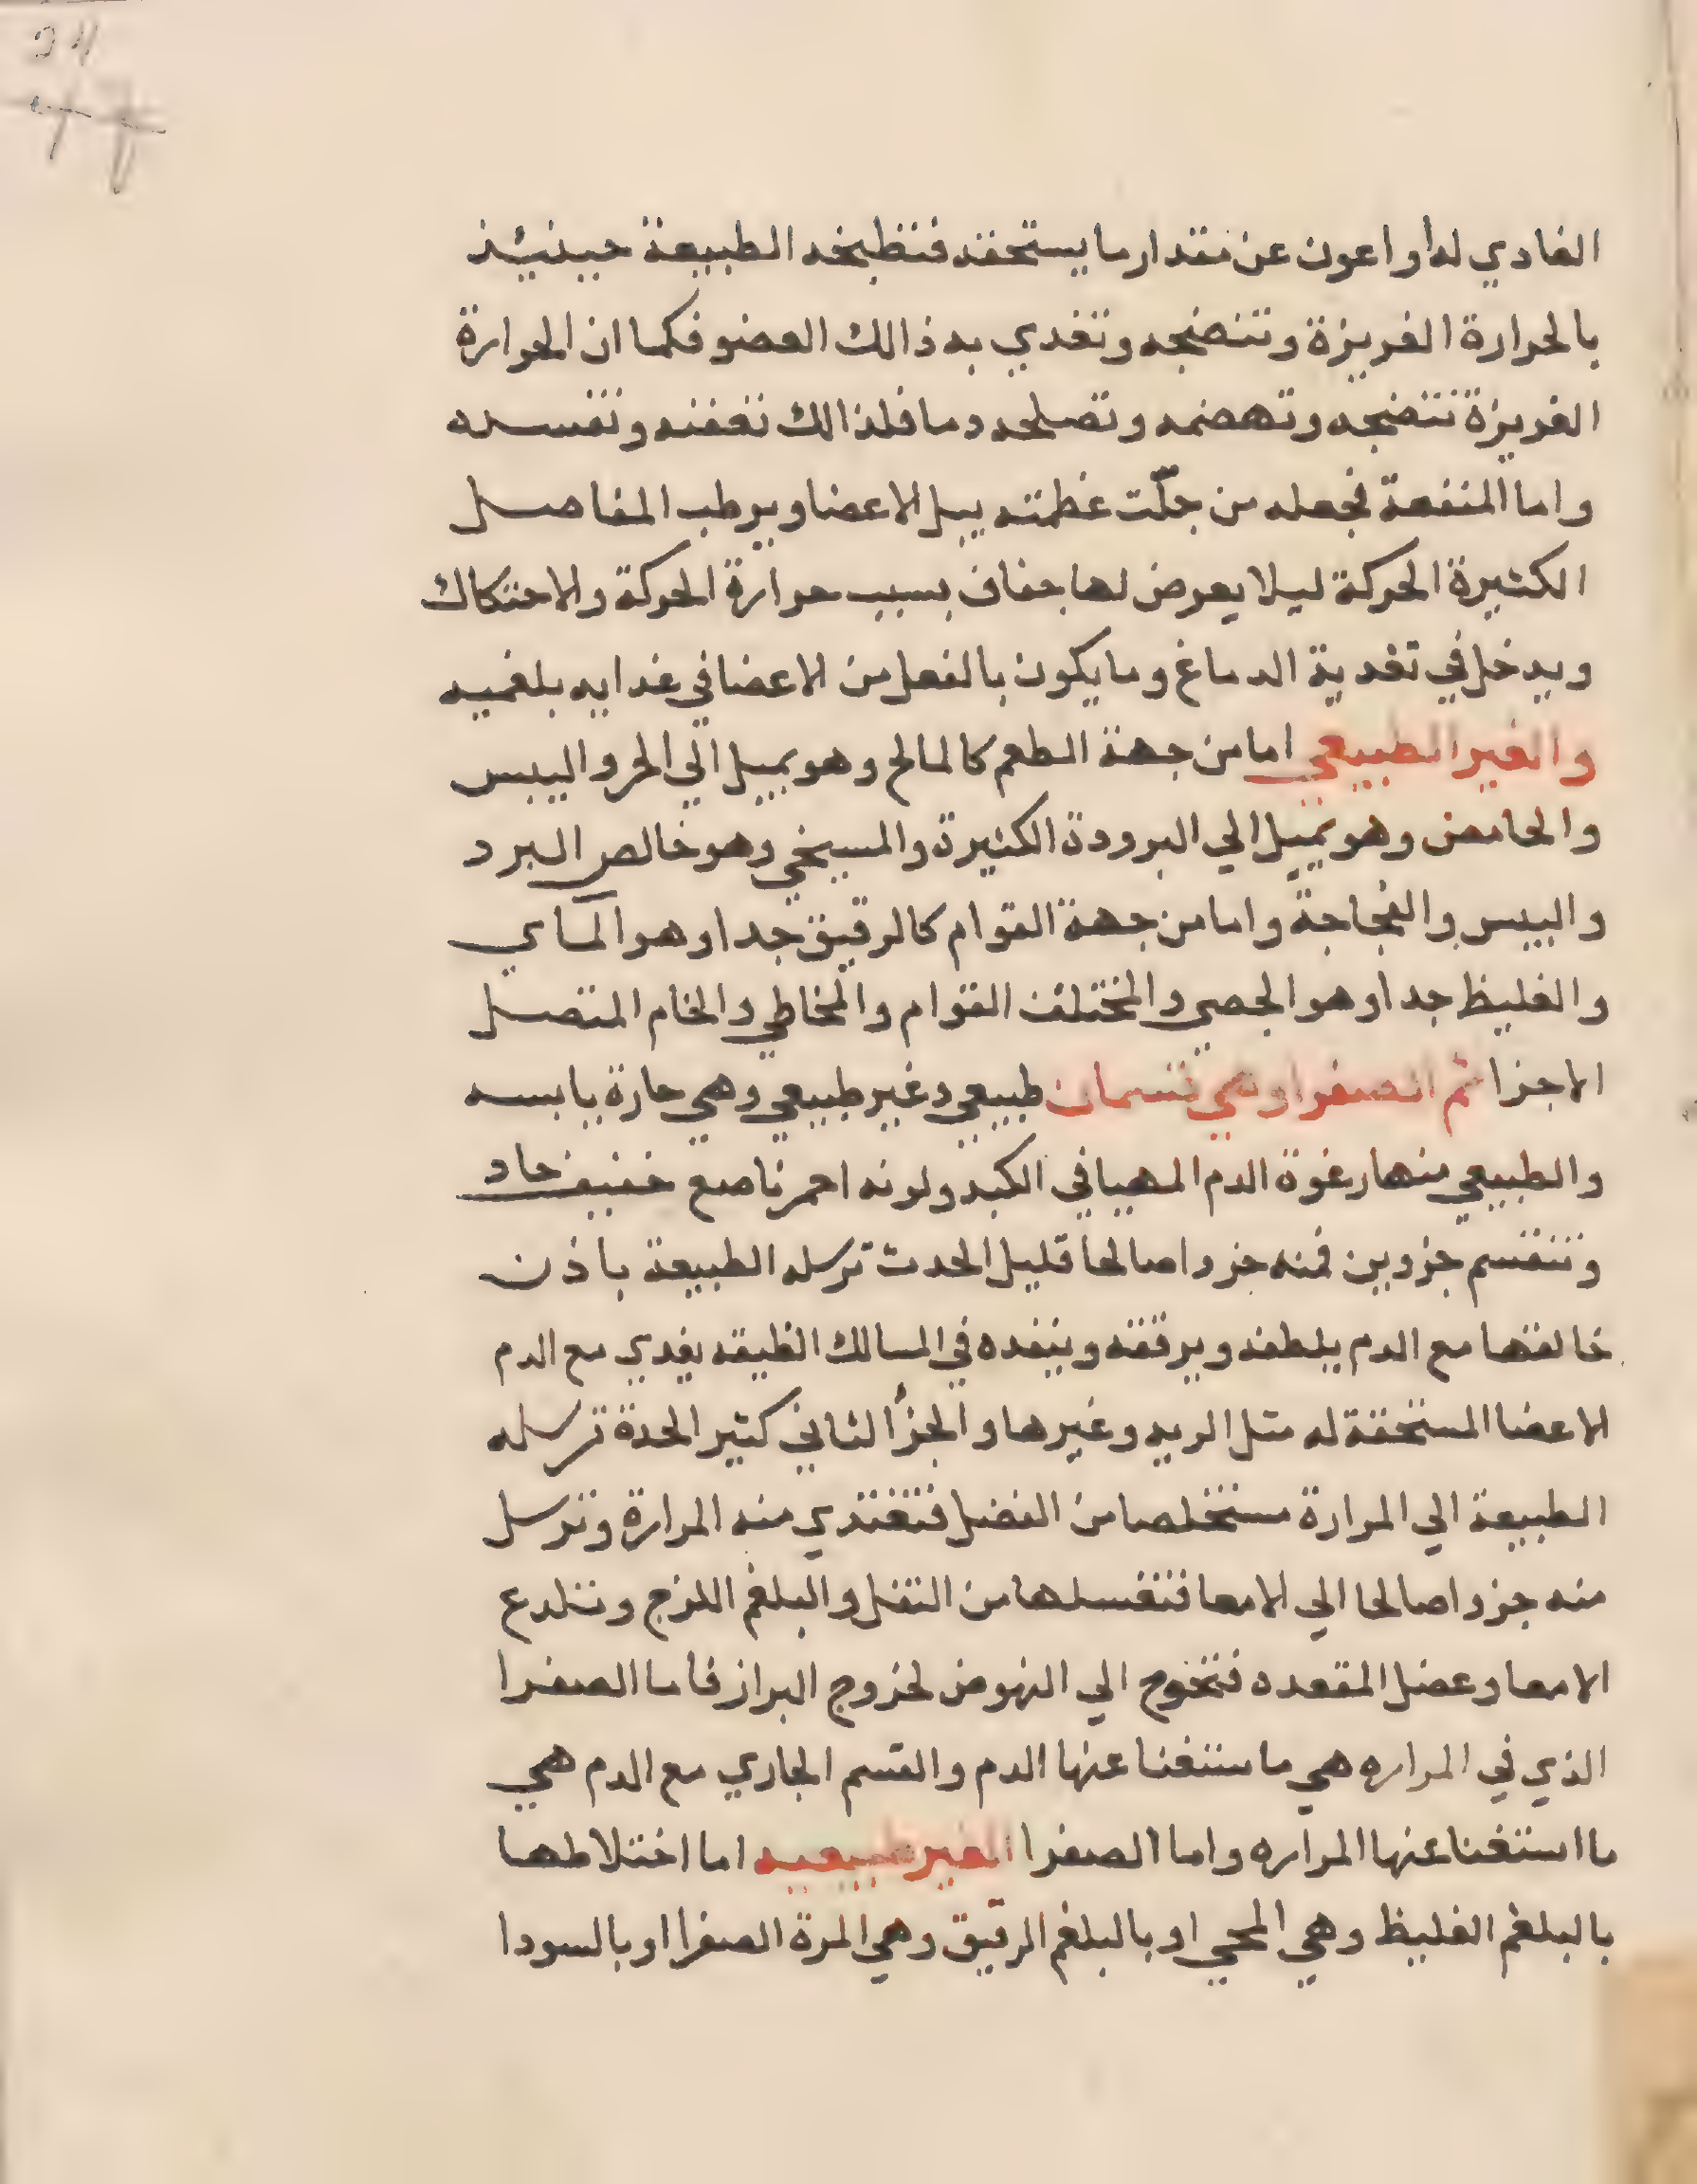 الغادي له او اعون عن مقدار ما يستحقه فتطبخه الطبيعة حينئذ
بالحرارة الغريزة وتنضجه وتغدي به ذالك العضو فكما ان الحرارة
الغريزة تنضجه وتهضمه وتصلحه دما فلذالك تعفنه وتفسده
واما المنفعة فجعله من جلّت عظمته يبل الاعضا ويرطب المفاصل
الكثيرة الحركة ليلا يعرض لها جفاف بسبب حرارة الحركة والاحتكاك
ويدخل في تغدية الدماغ وما يكون بالفعل من الاعضا في غدايه بلغميه
والغير الطبيعي اما من جهة الطعم كالمالح وهو يميل الي الحر واليبس
والحامض وهو يميل الي البرودة الكثيرة والمسيخي وهو خالص البرد
واليبس والفجاجة واما من جهة القوام كالرقيق جدا وهو المآي
والغليظ جدا وهو الجصي والمختلف القوام والمخاطي والخام المتصل
الاجزا ثم الصفرا وهي قسمان طبيعي وغير طبيعي وهي حارة يابسه
والطبيعي منها رغوة الدم المهيا في الكبد ولونه احمر ناصع خفيف حاد
وتنقسم جزوين فمنه جزوا صالحا قليل الحدت ترسله الطبيعة باذن
خالقها مع الدم يلطفه ويرققه وينفده في المسالك الظيقه يغدي مع الدم
الاعضا المستحقة له متل الريه وغيرها والجزأ الثاني كثير الحدة ترسله
الطبيعة الي المرارة مستخلصا من الفضل فتغتدي منه المرارة وترسل
منه جزوا صالحا الي الامعا فتغسلها من التفل والبلغم اللزج وتلدع
الامعا وعضل المقعده فتحوج الي النهوض لخروج البراز فاما الصفرا
الذي في المراره هي ما ستغنا عنها الدم والقسم الجاري مع الدم هي
ما استغنا عنها المراره واما الصفرا الغير طبيعيه اما اختلاطها
بالبلغم الغليظ وهي المحي او بالبلغم الرقيق وهي المرة الصفرا او بالسودا